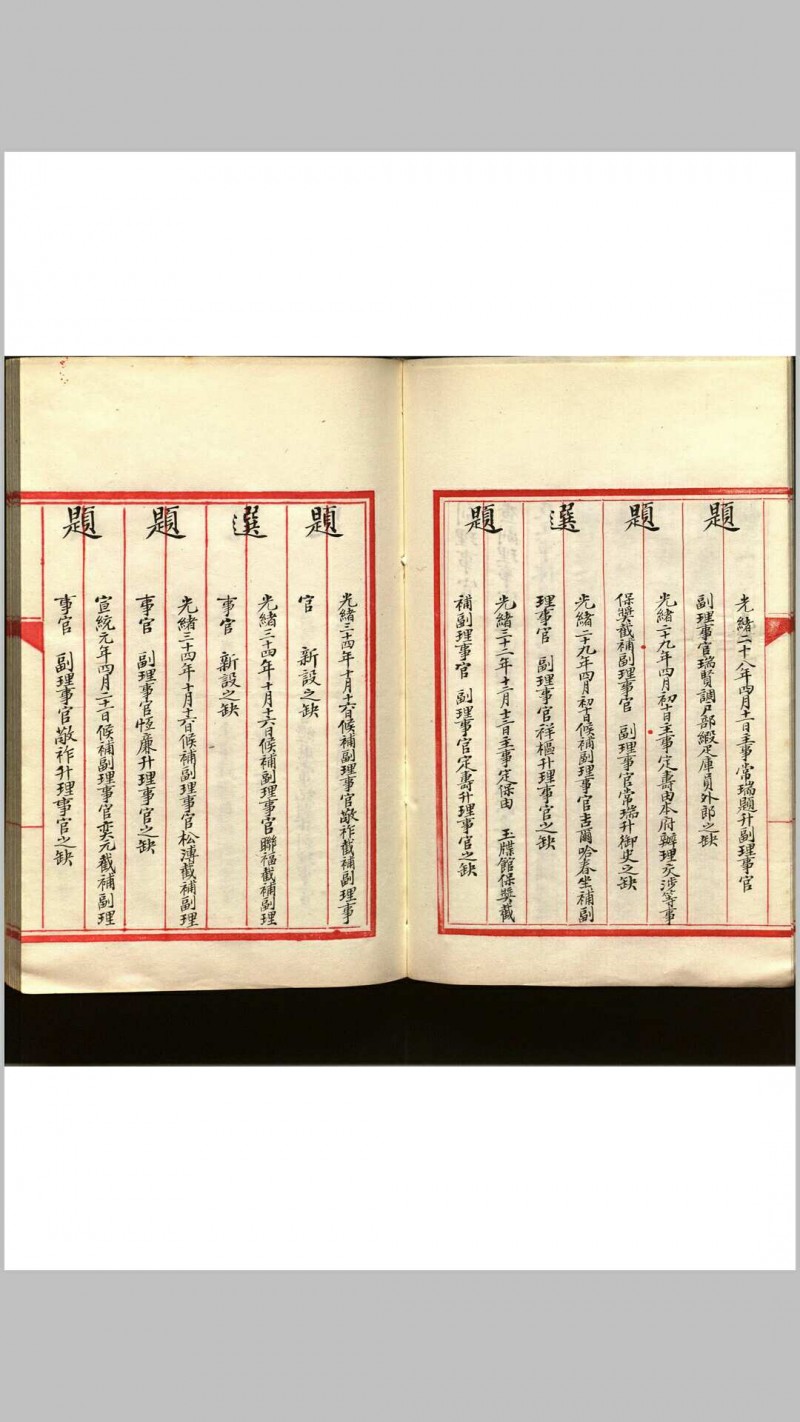 光緒二十八年四月十一日主事常瑞題升副理事官
題
副理事官瑞賢調戶部緞疋庫員外郎之缺
光緒二十九年四月初十日主事定壽由本府辦理交涉等事
題
保奬截補副理事官 副理事官常瑞升御史之缺
光緒二十九年四月初十日候補副理事官吉爾哈春坐補副
選
理事官 副理事官祥樞升理事官之缺
光緒三十二年十二月十二日主事定保由 玉牒館保奬截
題
補副理事官 副理事官定壽升理事官之缺
光緒三十四年十月十六日候補副理事官敬祚截補副理事
題
官 新設之缺
光緒三十四年十月十六日候補副理事官聯福截補副理
選
事官 新設之缺
光緒三十四年十月十六日候補副理事官松溥截補副理
題
事官 副理事官恆廉升理事官之缺
宣統元年四月二十一日候補副理事官奕元截補副理
題
事官 副理事官敬祚升理事官之缺